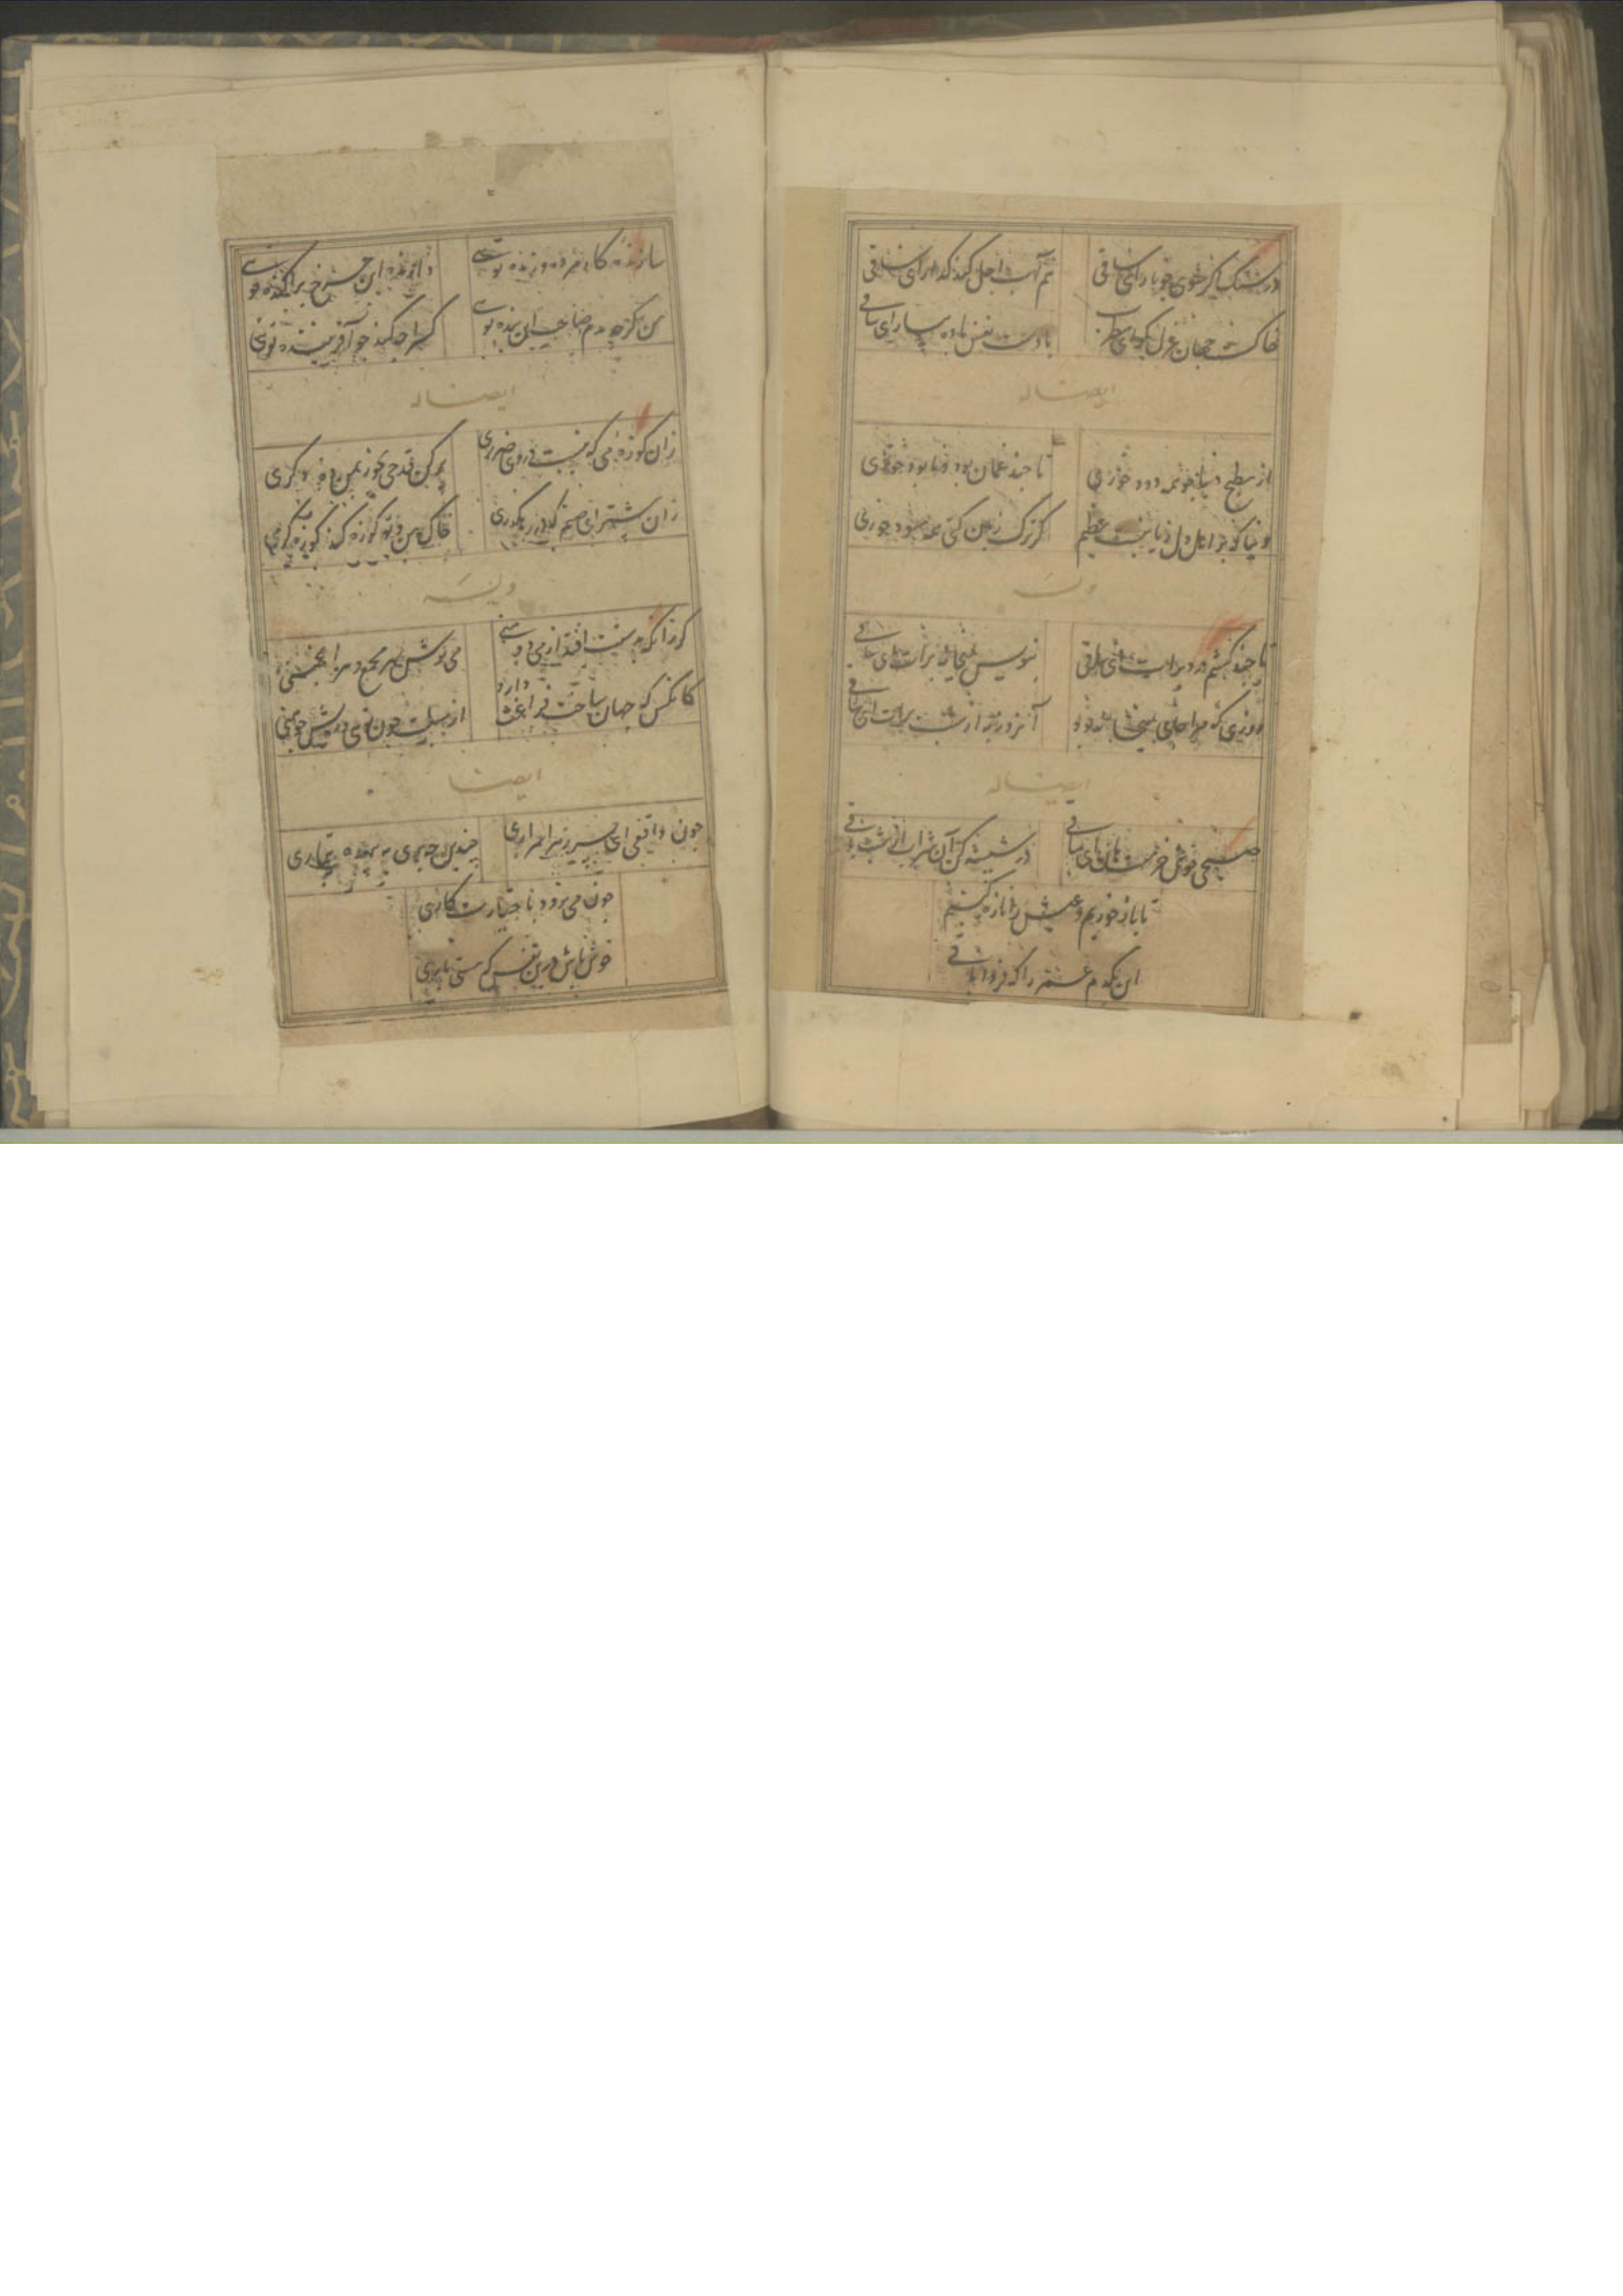 در سنگ اگر شوی چو نار ای ساقی
هم آب اجل کند گذار ای ساقی
خاکست جهان غزل بگو ای مطرب
بادست نفس باده بیار ای ساقی
ایضا له
از مطبخ دنیا تو همه دود خوری
تا چند غمان بود و نابود خوری
دنیا که بر اهل دل زیانیست عظیم
گر ترک زیان کنی همه سود خوری
وله
تا چند کشم درد ای ساقی
بنویس ای ساقی
روزی که مرا
آنروز ای ساقی
ایضا له
صبحی خوش خرمست ای ساقی
در شیشه کن آن شراب از شب باقی
تا باز خوریم و عیش را تازه کنیم
این یکدم عمر را که فردا باقی
سازنده کار مرده و زنده توئی
دارنده این چرخ پراکنده توئی
من گرچه بدم صاحب این بنده توئی
کس را چه گنه چو آفریننده توئی
ایضا له
زان کوزه می که نیست در وی ضرری
پر کن قدحی بخور بمن ده دگری
زان پیشتر ای صنم که در رهگذری
خاک من و تو کوزه کند کوزه گری
وله
گر زانکه بدست افتد از می دو منی
می نوش بهر مجمع و هر انجمنی
کانکس که جهان ساخت فراغت دارد
از سبلت چون توی و ریش چو منی
ایضا
چون واقفی ای پسر ز هر اسراری
چندین چه بری به بیهده تیماری
چون می نرود باختیارت کاری
خوش باش درین نفس که هستی باری